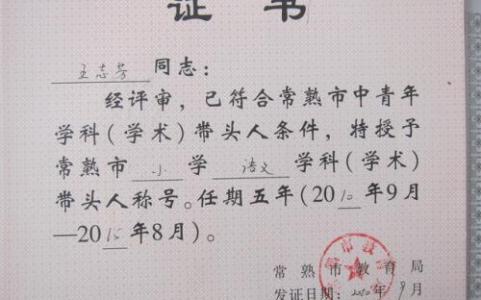 证书
王志芳同志：
经评审，已符合常熟市中青年
学科(学术)带头人条件，特授予
常熟市小学语文学科(学术)
带头人称号。任期五年(2010年9月
—2015年8月)。
常熟市教育局
发证日期：2010年9月